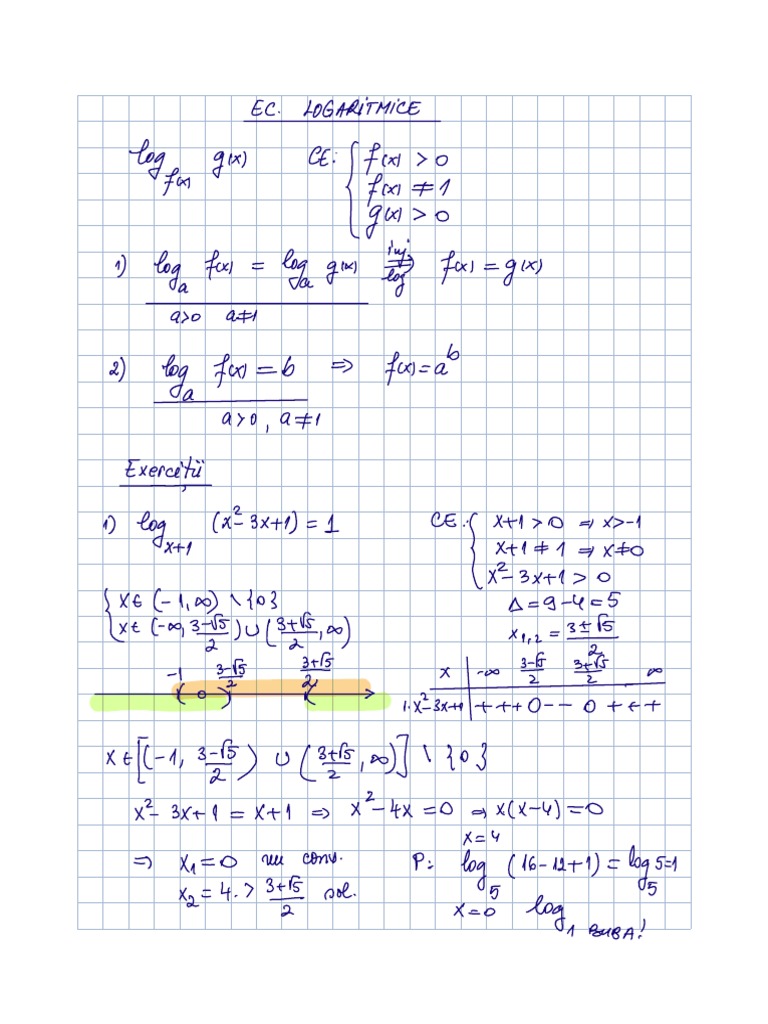 EC. LOGARITMICE
log_f(x) g(x) CE: { f(x) > 0
f(x) ≠ 1
g(x) > 0
1) log_a f(x) = log_a g(x) inj. ⇒ log f(x) = g(x)
a>0 a≠1
2) log_a f(x) = b ⇒ f(x) = a^b
a>0, a≠1
Exerciții
1) log_x+1 (x²-3x+1) = 1 CE: { x+1 > 0 ⇒ x>-1
x+1 ≠ 1 ⇒ x≠0
x²-3x+1 > 0
{ x∈(-1,∞) \ {0} Δ=9-4=5
x∈(-∞, (3-√5)/2) ∪ ((3+√5)/2, ∞) x₁,₂ = (3±√5)/2
-1 0 (3-√5)/2 (3+√5)/2
x | -∞ (3-√5)/2 (3+√5)/2 ∞
1·x²-3x+1 | +++0-- 0 +++
x∈[(-1, (3-√5)/2) ∪ ((3+√5)/2, ∞)] \ {0}
x²-3x+1 = x+1 ⇒ x²-4x=0 ⇒ x(x-4)=0
x=4
⇒ x₁=0 nu conv. P: log_5 (16-12+1) = log_5 5=1
x₂=4. > (3+√5)/2 sol.
x=0 log_1 BUBA!